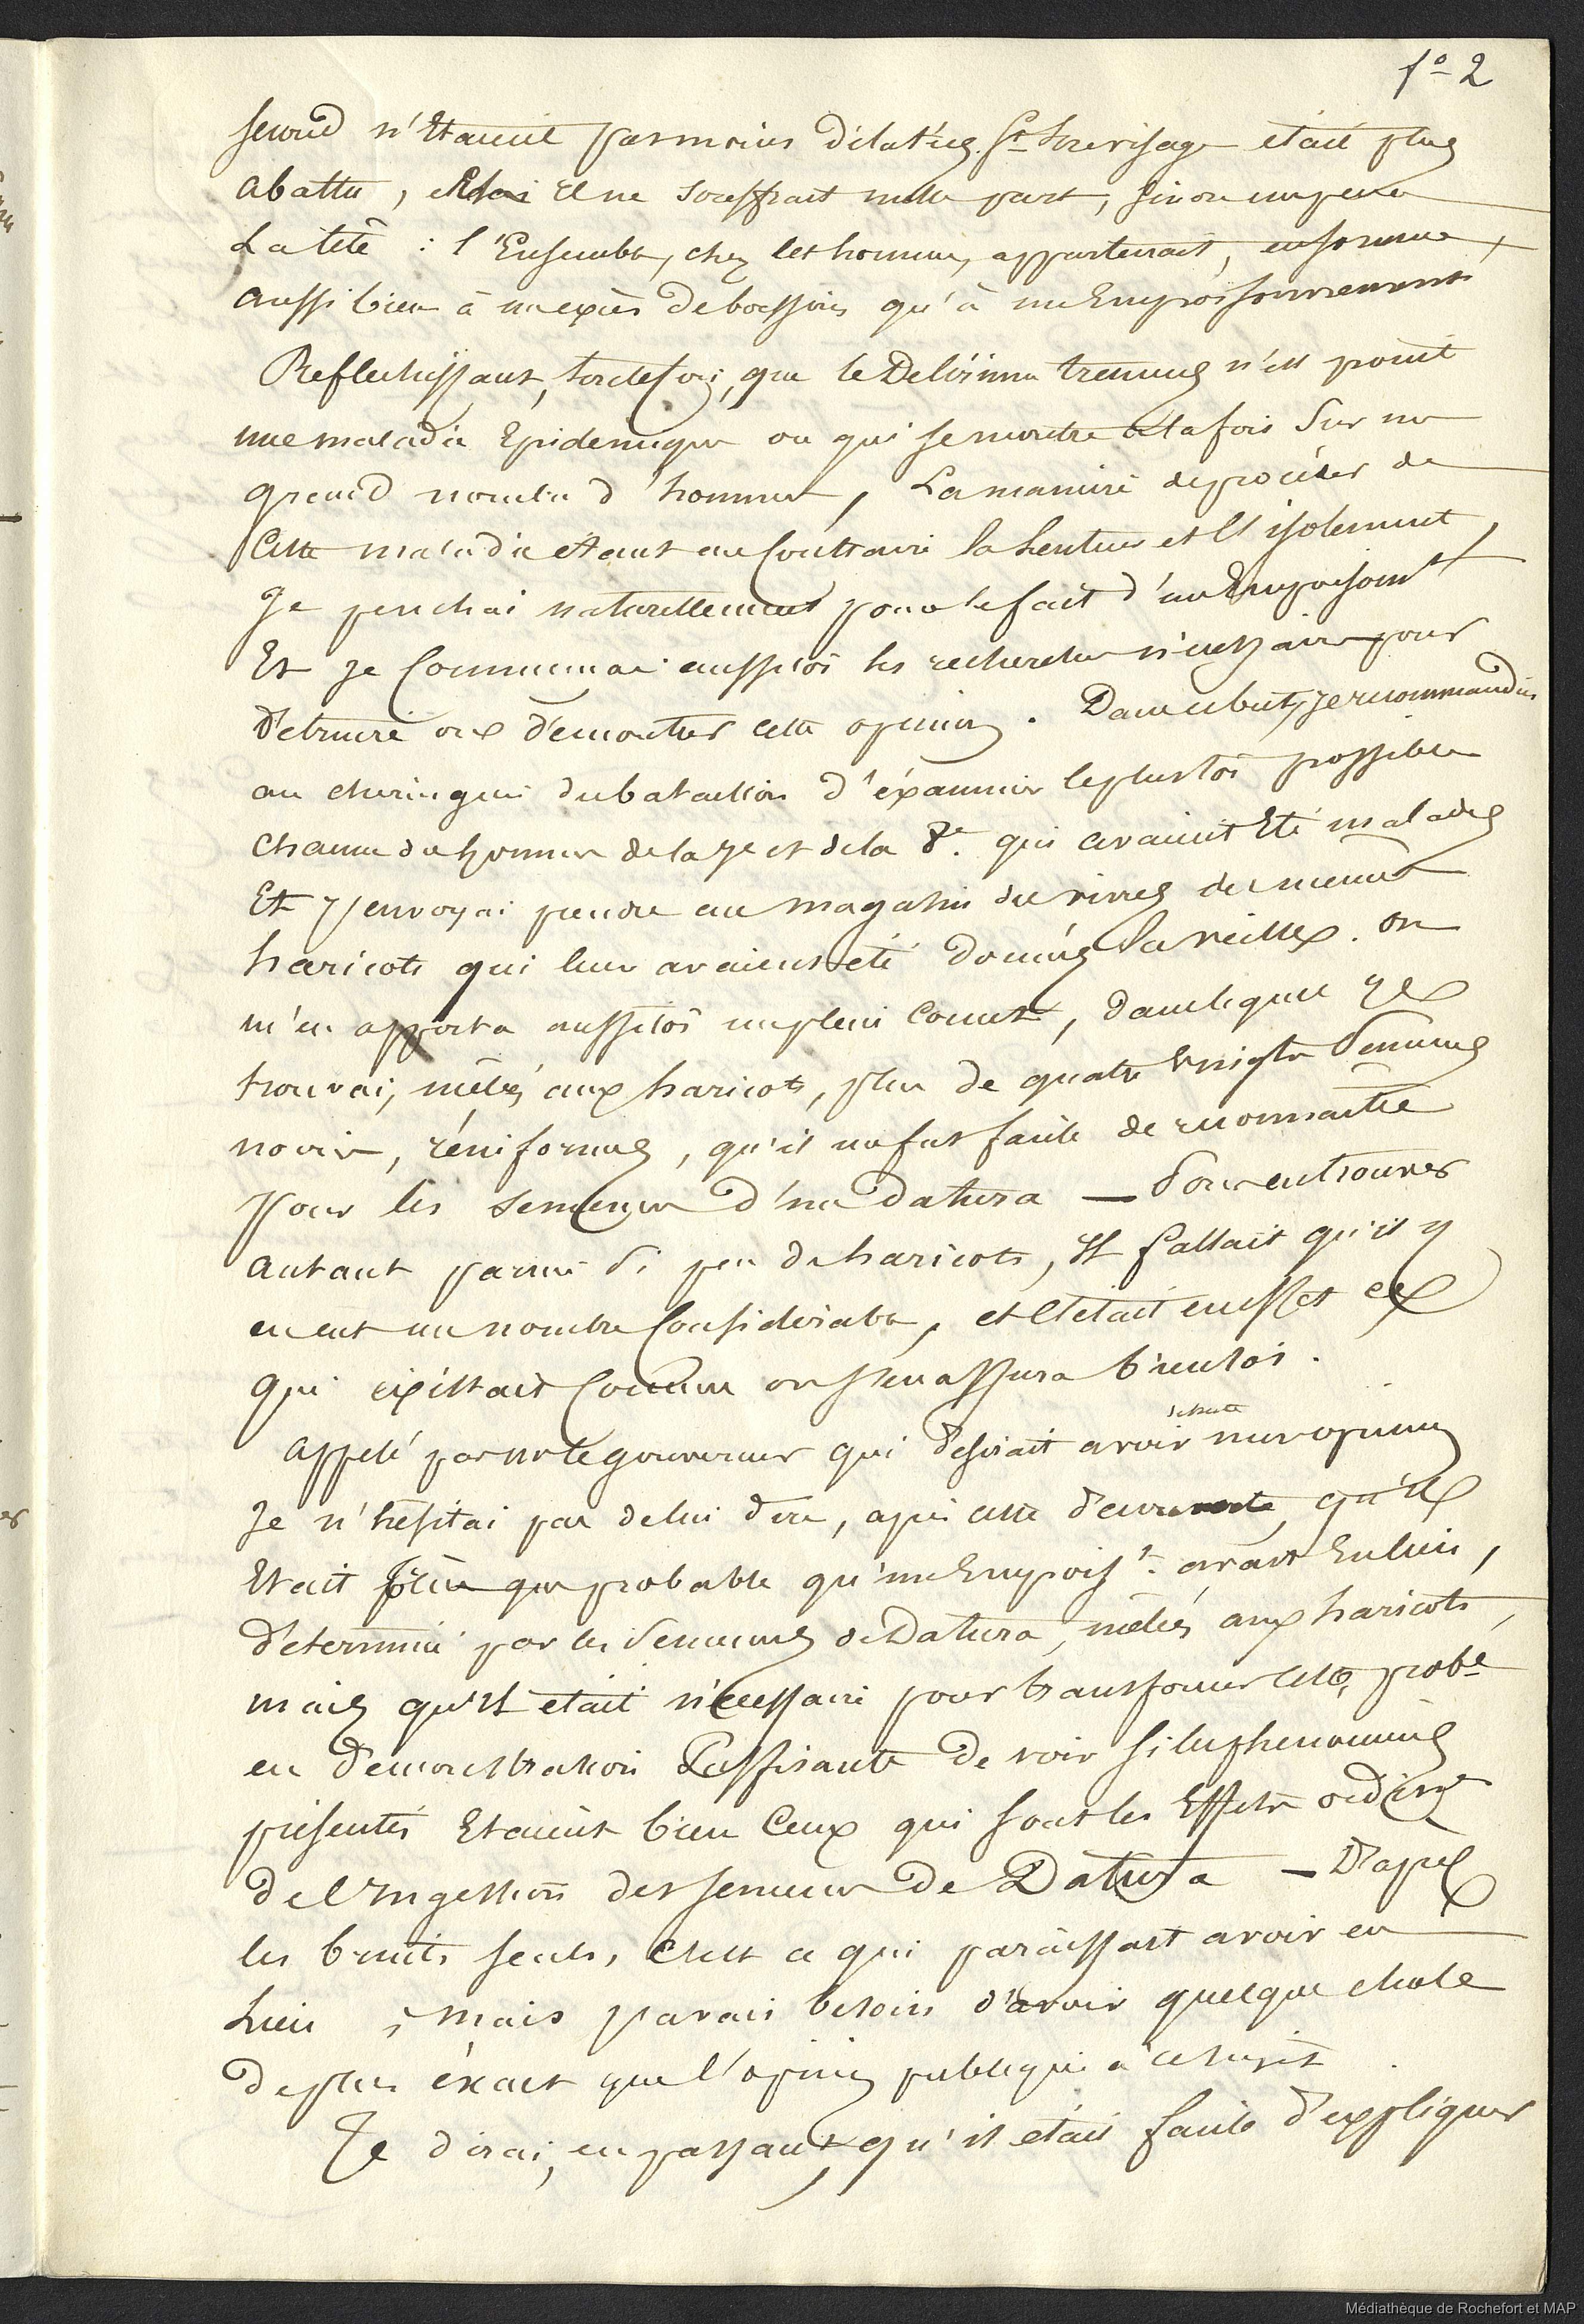 fo 2
second n'étaient pas moins dilatées. Son visage était plus
abattu, et il ne souffrait nulle part, sinon un peu à
la tête : l'Ensemble, chez les hommes, appartenait, en somme,
aussi bien à un excès de boisson qu'à un Empoisonnement
Reflechissant, toutefois, que le Delirium tremens n'est point
une maladie Epidemique ou qui se montre à la fois sur un
grand nombre d'hommes, La manière de procéder de
Cette maladie etant au Contraire la lenteur et l'isolement,
Je penchai naturellement pour le fait d'un Empoisonnt
Et je Commençai aussitôt les recherches nécessaires pour
détruire ou démontrer cette opinion. Dans ce but, je recommandai
au chirurgien du bataillon d'éxaminer le plus tôt possible
chacun des hommes de la 7e et de la 8e. qui avaient Eté malades
Et j'envoyai prendre au magasin des vivres des mêmes
haricots qui leur avaient été donnés la veille. on
m'en apporta aussitôt un plein Cornet, dans lequel je
trouvai, mêlés aux haricots, plus de quatre vingts Semences
noires, réniformes, qu'il me fut facile de reconnaitre
pour les semences d'un Datura — Pour en trouver
autant parmi si peu de haricots, Il fallait qu'il y
en eut un nombre Considérable, et c'était en effet ce
qui éxistait Comme on s'en assura bientôt.
appelé par Mr le gouverneur qui désirait avoir mon opinion
Je n'hésitai pas de lui dire, après cette découverte, qu'il
Etait plus que probable qu'un Empoist. avait Eu lieu,
déterminé par les Semences de Datura, mêlées aux haricots,
mais qu'Il etait nécessaire pour transformer cette probé
en démonstration Suffisante de voir si les phenomènes
présentés Etaient bien Ceux qui sont les Effets ordires
de l'Ingestion des semences de Datura — D'après
les bruits seuls, C'est ce qui paraissait avoir eu
Lieu, mais j'avais besoin d'avoir quelque chose
de plus éxact que l'opinion publique à ce sujet.
Je dirai, en passant, qu'il etait facile d'expliquer
Médiathèque de Rochefort et MAP